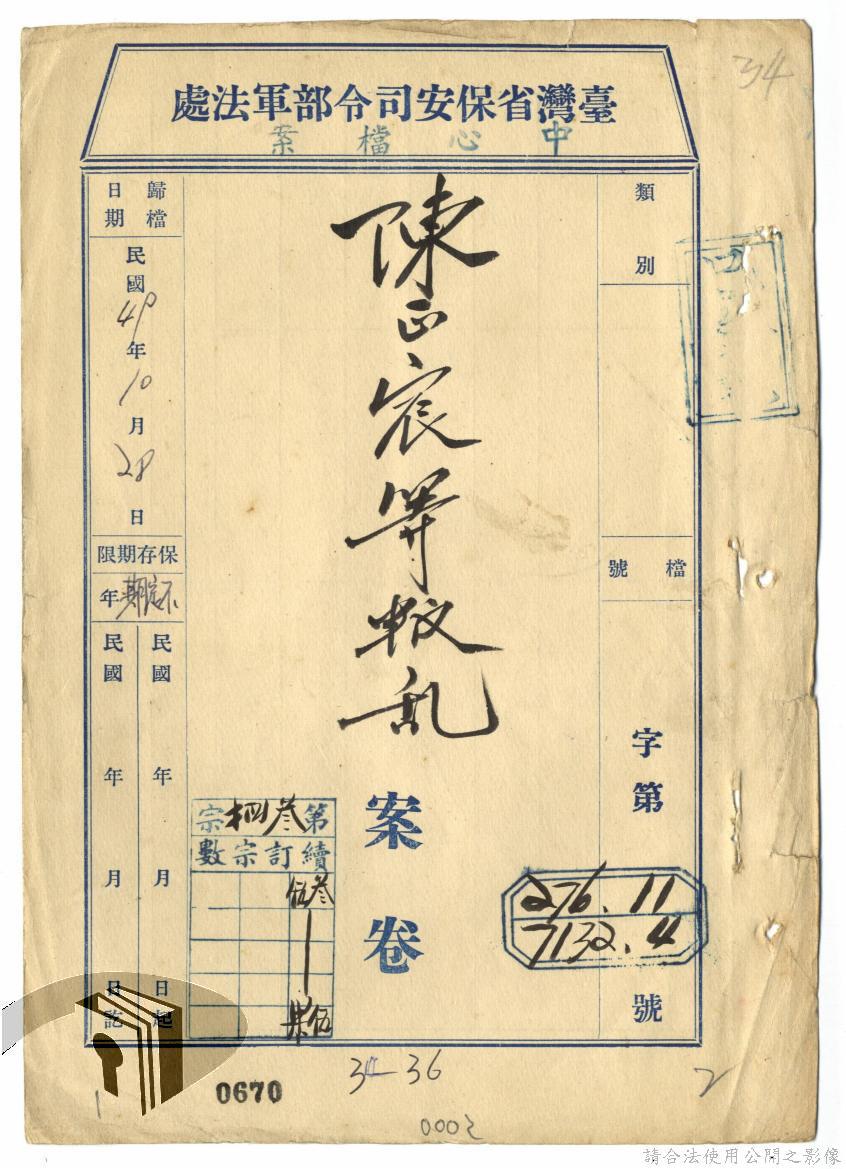 34
臺灣省保安司令部軍法處
中心檔案
類別
檔號
字第
276.11
7132.4
號
陳正宸等叛乱
案卷
第叁肆宗
續訂宗數
叁伍
伍柒
歸檔日期
民國49年10月28日
保存期限
不定期年
民國 年 月 日起
民國 年 月 日訖
0670
34-36
0002
2
請合法使用公開之影像